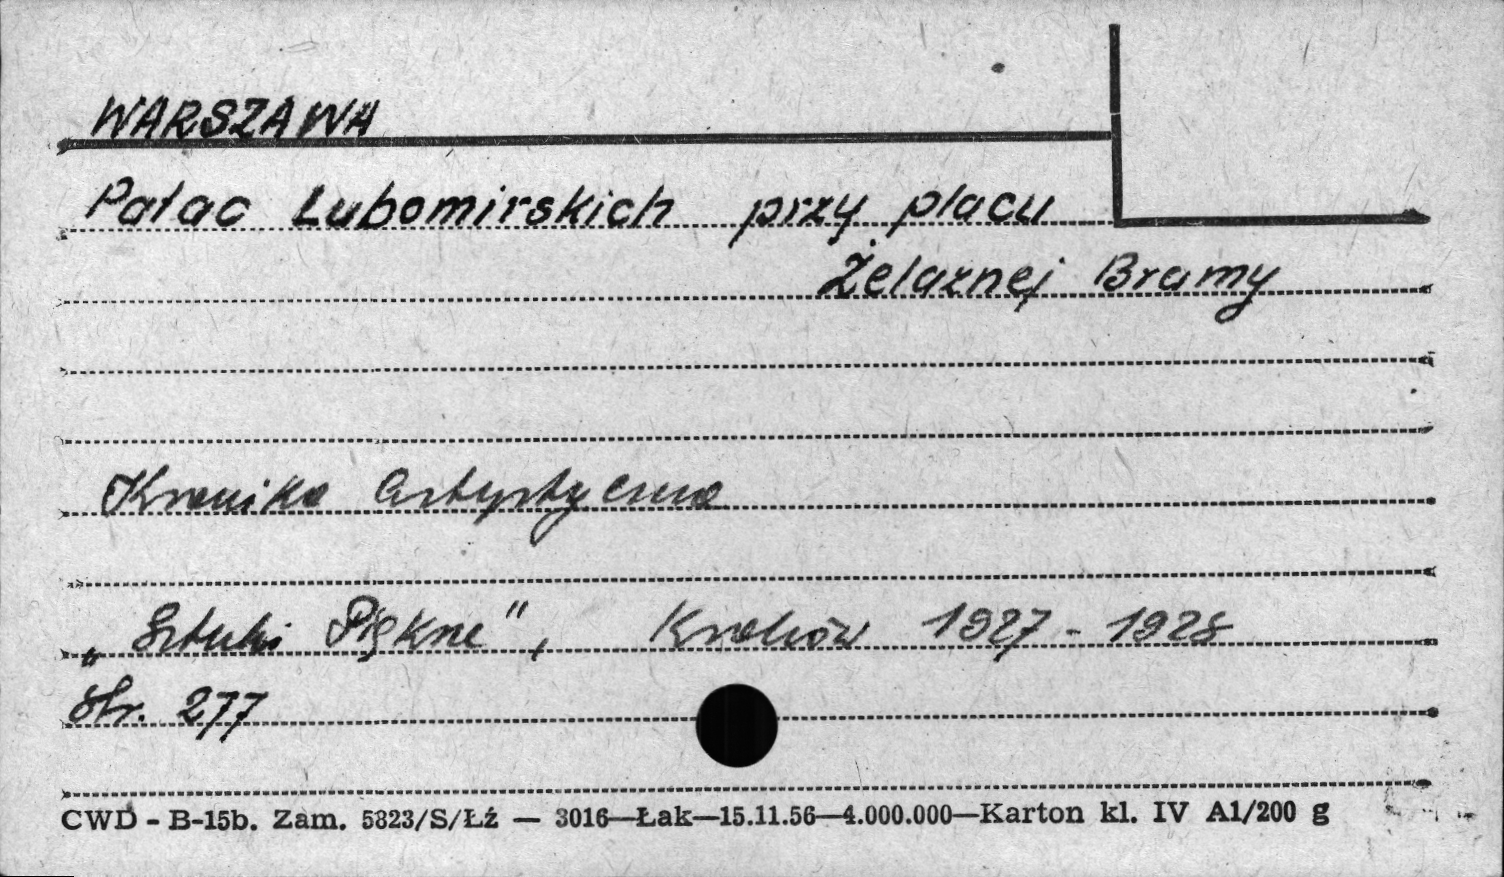 WARSZAWA
Pałac Lubomirskich przy placu
Żelaznej Bramy
Kronika Artystyczna
„Sztuki Piękne", Kraków 1927-1928
str. 277
CWD - B-15b. Zam. 5823/S/Łź — 3016—Łak—15.11.56—4.000.000—Karton kl. IV A1/200 g